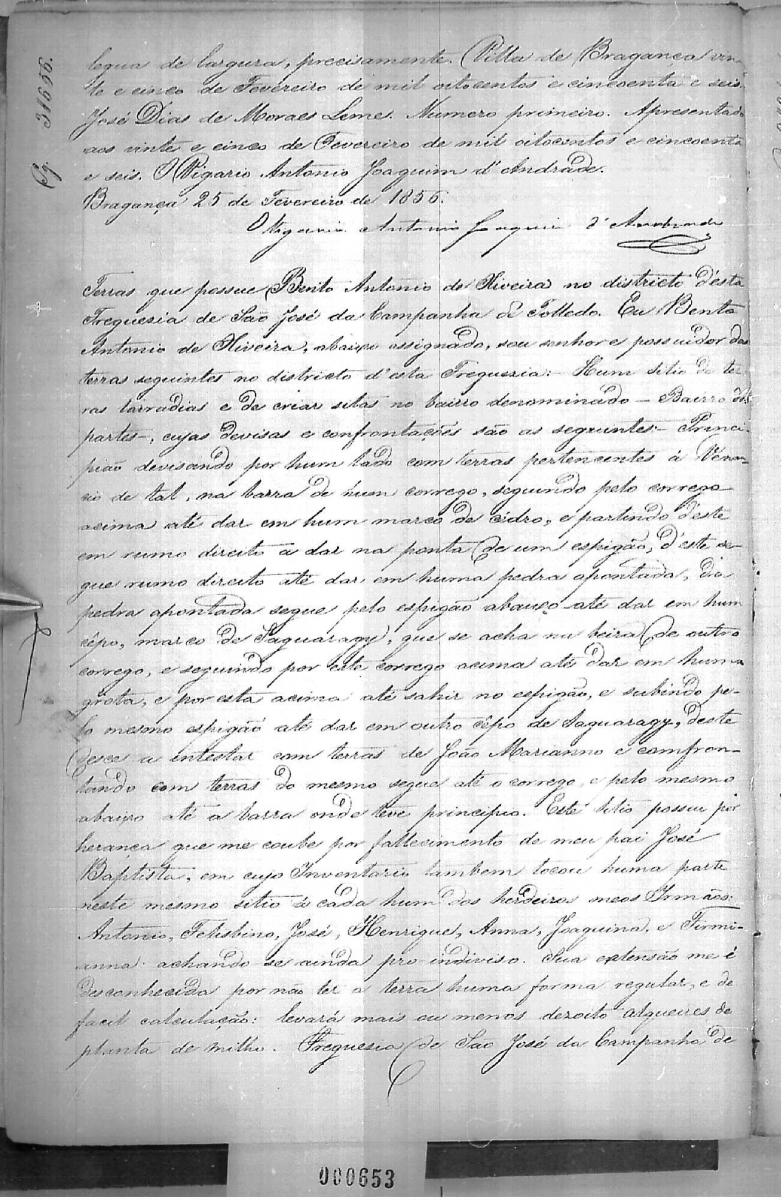 Pg. 31656.
legua de largura, precisamente. Villa de Bragança vin-
te e cinco de Fevereiro de mil oitocentos e cincoenta e seis
José Dias de Moraes Leme. Numero primeiro. Apresentado
aos vinte e cinco de Fevereiro de mil oitocentos e cincoenta
e seis. O Vigario Antonio Joaquim d'Andrade.
Bragança 25 de Fevereiro de 1856.
O Vigario Antonio Joaquim d'Andrade
Terras que possue Bento Antonio de Oliveira no districto d'esta
Freguezia de São José da Campanha de Tolledo. Eu Bento
Antonio de Oliveira, abaixo assignado, sou senhor e possuidor das
terras seguintes no districto d'esta Freguezia: Hum sitio de ter-
ras lavradias e de criar sitas no bairro denominado - Bairro das
partes -, cujas devisas e confrontações são as seguintes - Princi-
pião devisando por hum lado com terras pertencentes á Vénan-
cio de tal, na barra de hum corrego, seguindo pelo corrego
acima até dar em hum marco de cédro, e partindo d'este
em rumo direito a dar na ponta de um espigão, d'este se-
gue rumo direito até dar em huma pedra apontada, da
pedra apontada segue pelo espigão abaixo até dar em hum
cêpo, marco de Saguaragy, que se acha na beira de outro
corrego, e seguindo por este corrego acima até dar em huma
grota, e por esta acima até sahir no espigão, e subindo pe-
lo mesmo espigão até dar em outro cêpo de Saguaragy, deste
desce a intestar com terras de João Marianno e comfron-
tando com terras do mesmo segue até o corrego, e pelo mesmo
abaixo até a barra onde teve principio. Este sitio possui por
herança que me coube por fallecimento de meu pai José
Baptista, em cujo Inventario tambem tocou huma parte
neste mesmo sitio á cada hum dos herdeiros meos Irmãos:
Antonio, Felisbino, José, Henrique, Anna, Joaquina, e Firmi-
anna achando-se ainda pro indiviso. Sua extensão me é
desconhecida por não ter a terra huma forma regular, e de
facil calculação: levará mais ou menos dezoito alqueires de
planta de milho. Freguezia de São José da Campanha de
000653